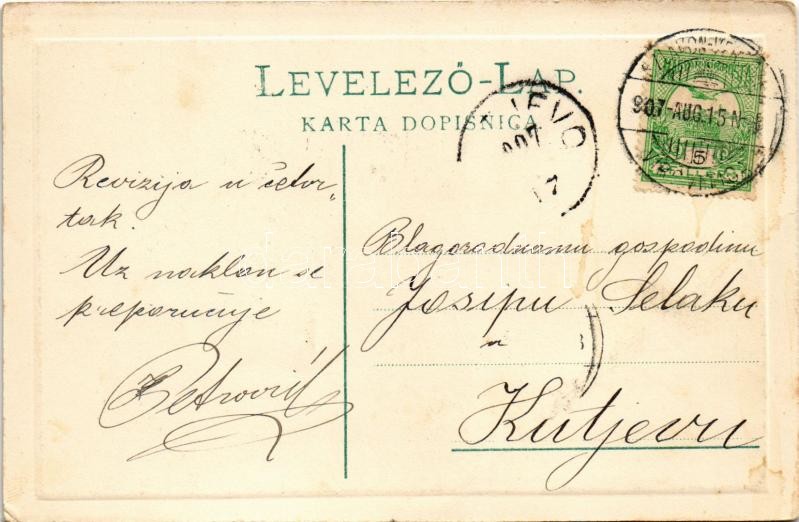 LEVELEZŐ-LAP.
KARTA DOPISNICA
907-AUG.15
907
17
5
Revizija u četvr-
tak.
Uz naklon se
preporučuje
Petrović
Blagorodnomu gospodinu
Josipu Selaku
u
Kutjevu